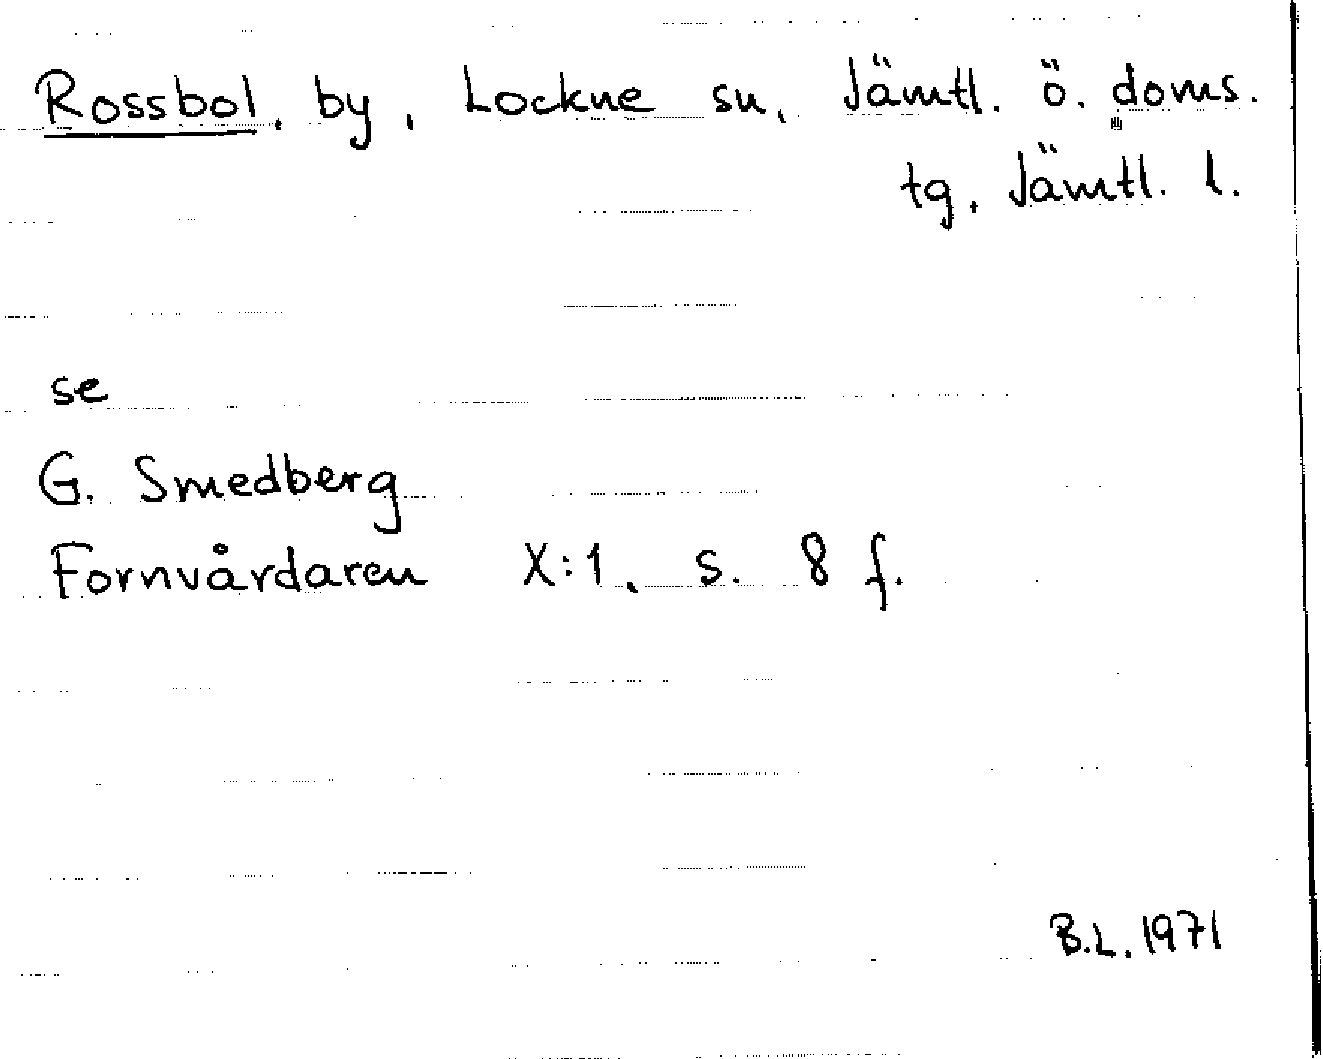 Rossbol, by, Lockne sn, Jämtl. ö. doms.
tg, Jämtl. l.
se
G. Smedberg
Fornvårdaren X:1, s. 8 f.
B.L. 1971